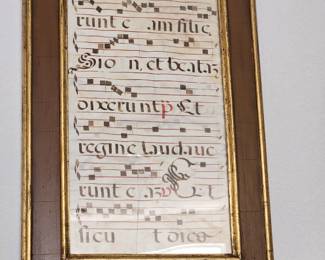 runt e am filie
Sio n, et beataz
dixerunt p Et
regine laudave
runt e az v Et
sicu t dies